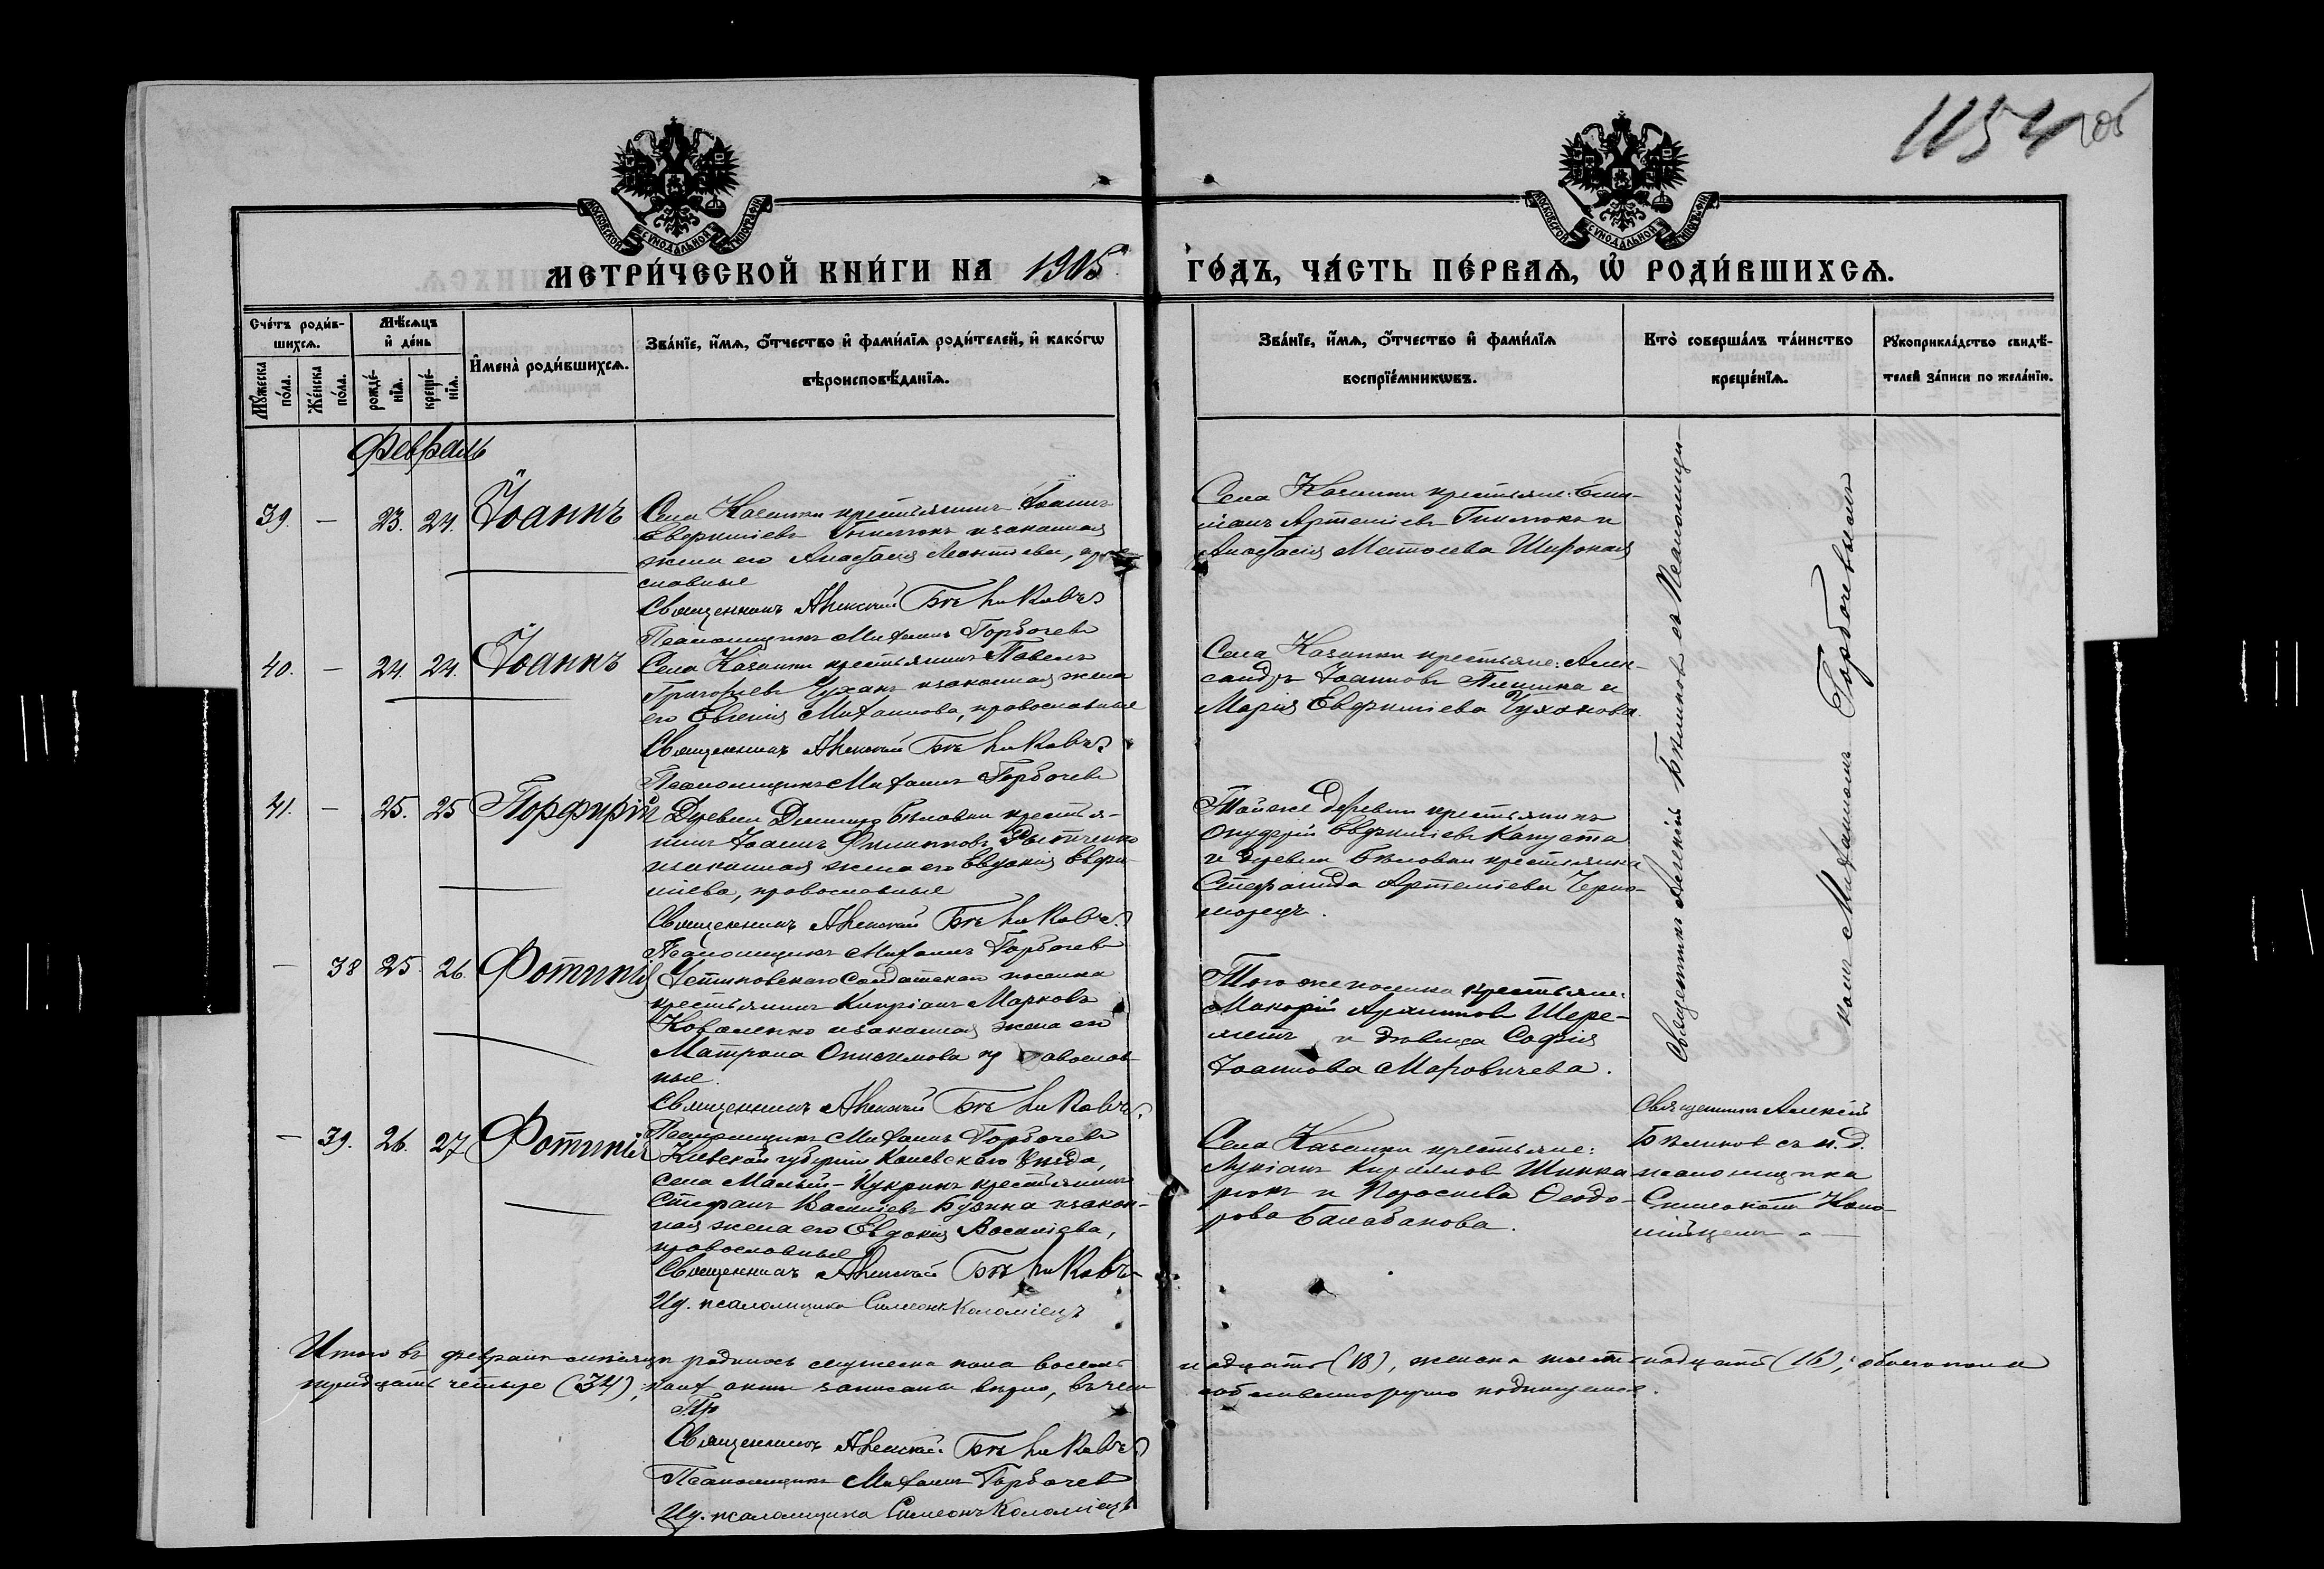 1154
105
МОСКОВСКОЙ СѴНОДАЛЬНОЙ ТИПОГРАФІИ
МОСКОВСКОЙ СѴНОДАЛЬНОЙ ТИПОГРАФІИ
МЕТРИ́ЧЕСКОЙ КНИ́ГИ НА 1905 ГО́ДЪ, ЧА́СТЬ ПЕ́РВАѦ, Ѡ҆ РОДИ́ВШИХСѦ.
Сче́тъ роди́в-
шихсѧ.
Мꙋ́жеска по́ла.
Же́нска по́ла.
Мѣ́сѧцъ
и҆ де́нь
рожде́-
нїѧ.
креще́-
нїѧ.
И҆мена̀ роди́вшихсѧ.
Зва́нїе, и҆́мѧ, ѻ҆́тчество и҆ фами́лїѧ роди́телей, и҆ како́гѡ
вѣроисповѣ́данїѧ.
Зва́нїе, и҆́мѧ, ѻ҆́тчество и҆ фами́лїѧ
воспрїе́мникѡвъ.
Кто̀ соверша́лъ та́инство
креще́нїѧ.
Рꙋкоприкла́дство свидѣ́-
телей за́писи по жела́нїю.
Февраль
39. — 23. 24. Іоаннъ
Села Казанки крестьянинъ Іоаннъ
Евфиміевъ и законная
жена его Анастасія Леонтіева, право
славные
Священникъ Алексѣй Бѣликовъ
Псаломщикъ Михаилъ Горбачевъ
Села Казанки крестьяне:
Артеміевъ и
Анастасія Матѳеева Широкая
40. — 24. 24. Іоаннъ
Села Казанки крестьянинъ Павелъ
Григорьевъ Чуханъ и законная жена
его Евгенія Михаилова, православные
Священникъ Алексѣй Бѣликовъ
Псаломщикъ Михаилъ Горбачевъ
Села Казанки крестьяне: Алек-
сандръ Іоанновъ и
Марія Евфиміева Чуханова.
41. — 25. 25 Порфирій
Деревни Бѣловки крестья-
нинъ Іоаннъ Филипповъ
и законная жена его Евдокія Евфи-
міева, православные
Священникъ Алексѣй Бѣликовъ
Псаломщикъ Михаилъ Горбачевъ
Той же деревни крестьянинъ
Онуфрій Евфиміевъ Капуста
и деревни Бѣловки крестьянка
Стефанида Артеміева Черно-
морецъ.
— 38 25 26. Фотинія
Устиновскаго Солдатскаго поселка
крестьянинъ Кипріанъ Марковъ
Коваленко и законная жена его
Матрона Онисимова православ-
ные.
Священникъ Алексѣй Бѣликовъ
Псаломщикъ Михаилъ Горбачевъ
Того же поселка крестьяне:
Макарій Архиповъ Шере-
метъ и дѣвица Софія
Іоаннова Маровичева.
Священникъ Алексѣй Бѣликовъ съ Псаломщи-
комъ Михаиломъ Горбачевымъ
— 39. 26. 27 Фотинія
Кіевской губерніи Каневскаго уѣзда,
села Малый-Букринъ крестьянинъ
Стефанъ Василіевъ Бузина и закон-
ная жена его Евдокія Василіева,
православные
Священникъ Алексѣй Бѣликовъ
И.д. псаломщика Симеонъ Коломіецъ
Села Казанки крестьяне:
Лукіанъ Кирилловъ Шинка-
рюкъ и Параскева Ѳеодо-
рова Балабанова.
Священникъ Алексѣй
Бѣликовъ съ и.д.
псаломщика
Симеономъ Коло-
мійцемъ. —
Итого въ февралѣ мѣсяцѣ родилось мужеска пола восем-
надцать (18), женска шестнадцать (16), обоего пола
тридцать четыре (34), акты записаны вѣрно, въ чемъ
собственноручно подписуемся.
Пр
Священникъ Алексѣй Бѣликовъ
Псаломщикъ Михаилъ Горбачевъ
И.д. псаломщика Симеонъ Коломіецъ